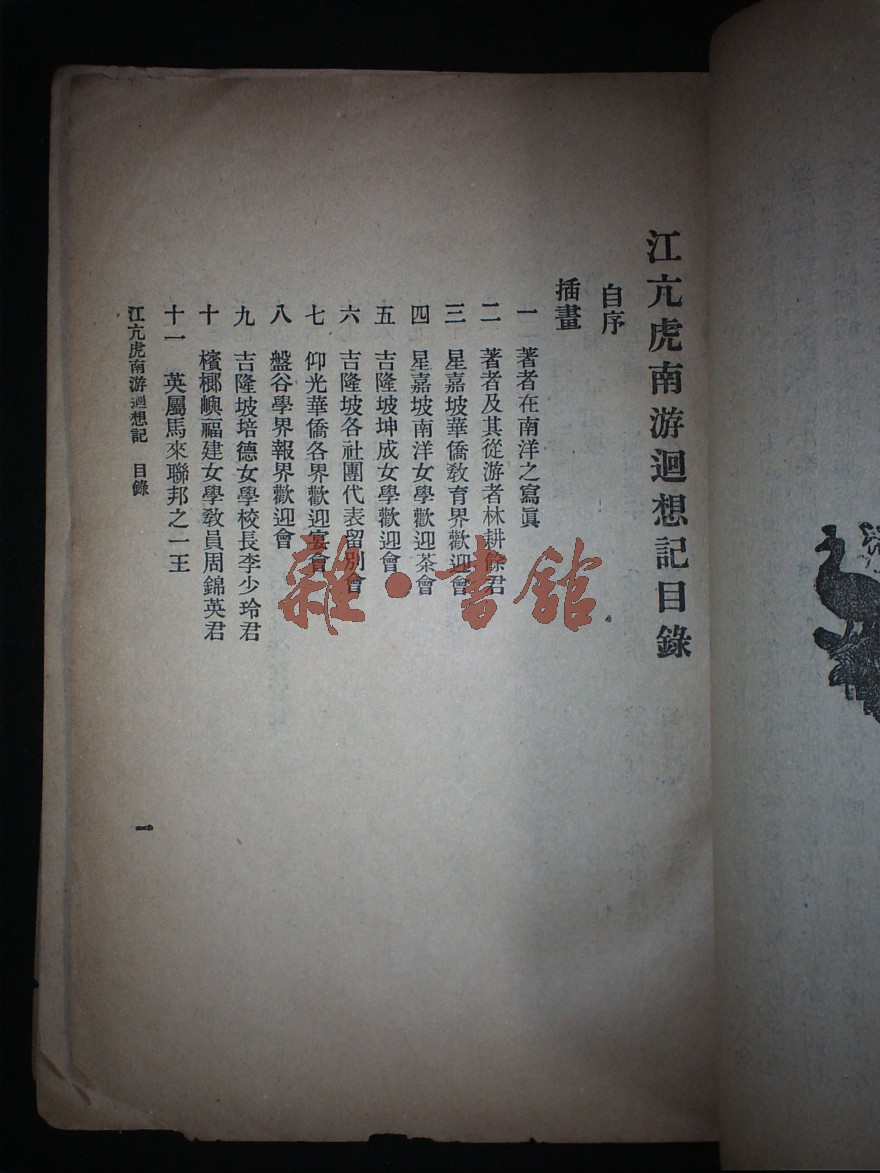 江亢虎南游迴想記目錄
自序
插畫
一 著者在南洋之寫眞
二 著者及其從游者林耕餘君
三 星嘉坡華僑敎育界歡迎會
四 星嘉坡南洋女學歡迎茶會
五 吉隆坡坤成女學歡迎會
六 吉隆坡各社團代表留別會
七 仰光華僑各界歡迎宴會
八 盤谷學界報界歡迎會
九 吉隆坡培德女學校長李少玲君
十 檳榔嶼福建女學敎員周錦英君
十一 英屬馬來聯邦之一王
江亢虎南游迴想記 目錄
一
雜·書館